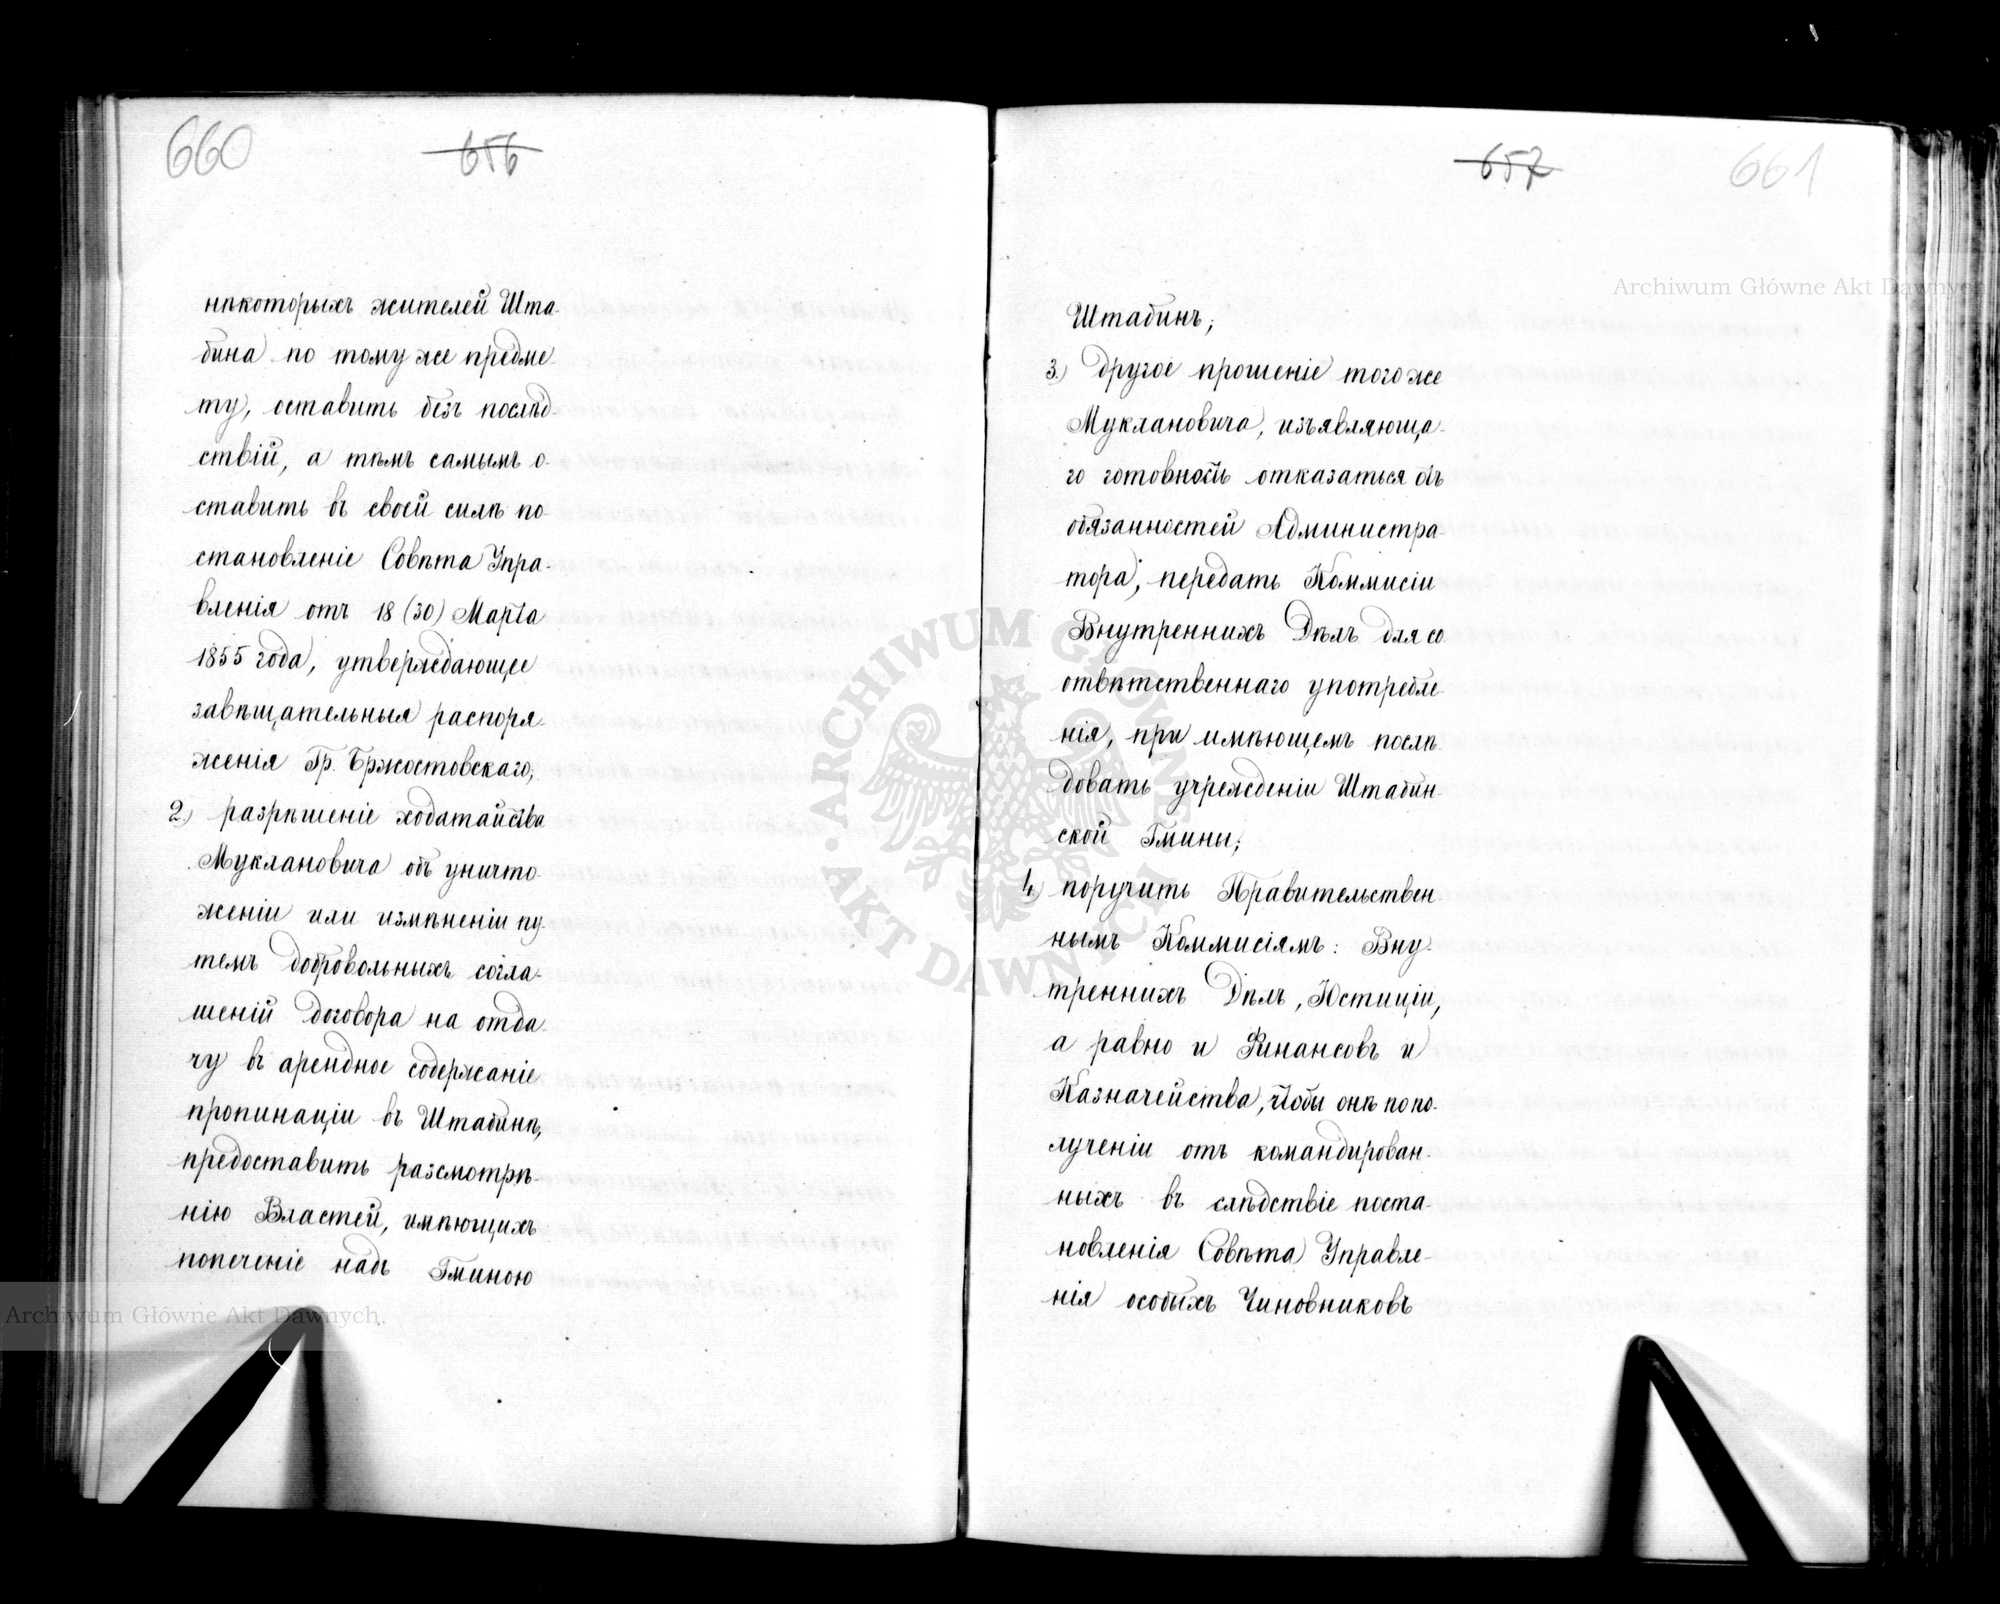 660
656
нѣкоторыхъ жителей Шта-
бина по тому же предме-
ту, оставить безъ послѣд-
ствій, а тѣмъ самымъ о-
ставить въ своей силѣ по-
становленіе Совѣта Упра-
вленія отъ 18 (30) Марта
1855 года, утверждающее
завѣщательныя распоря-
женія Гр. Бржостовскаго;
2) разрѣшеніе ходатайства
Муклановича объ уничто-
женіи или измѣненіи пу-
темъ добровольныхъ согла-
шеній договора на отда-
чу въ арендное содержаніе
пропинаціи въ Штабинѣ,
предоставить разсмотрѣ-
нію Властей, имѣющихъ
попеченіе надъ Гминою
657
661
Штабинъ;
3) другое прошеніе того же
Муклановича, изъявляюща-
го готовность отказаться отъ
обязанностей Администра-
тора, передать Коммисіи
Внутреннихъ Дѣлъ для со
отвѣтственнаго употребле-
нія, при имѣющемъ послѣ-
довать учрежденіи Штабин-
ской Гмины;
4) поручить Правительствен-
нымъ Коммисіямъ: Вну-
треннихъ Дѣлъ, Юстиціи,
а равно и Финансовъ и
Казначейства, чтобы онѣ по по-
лученіи отъ командирован-
ныхъ въ слѣдствіе поста-
новленія Совѣта Управле-
нія особыхъ Чиновниковъ
Archiwum Główne Akt Dawnych
Archiwum Główne Akt Dawnych
ARCHIWUM GŁÓWNE AKT DAWNYCH